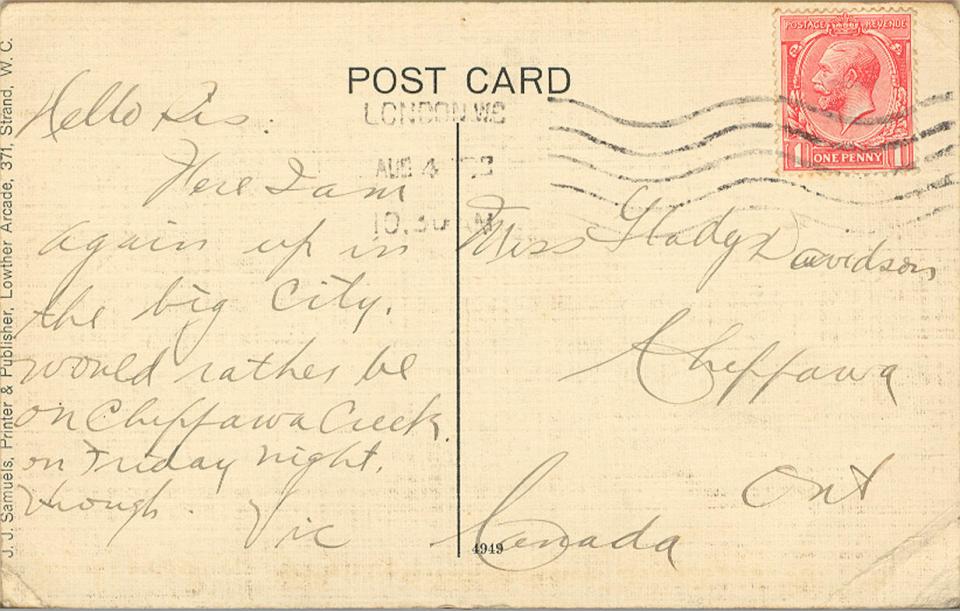 POST CARD
LONDON. W.C
AUG 4
10.30 M
POSTAGE REVENUE
1 ONE PENNY 1
Hello Sis.
Here I am
again up in
the big City.
would rather be
on Chippawa Creek.
on Friday night.
though. Vic
Miss Glady Davidson
Chippawa
Ont
Canada
4949
J. J. Samuels, Printer & Publisher, Lowther Arcade, 371, Strand, W. C.